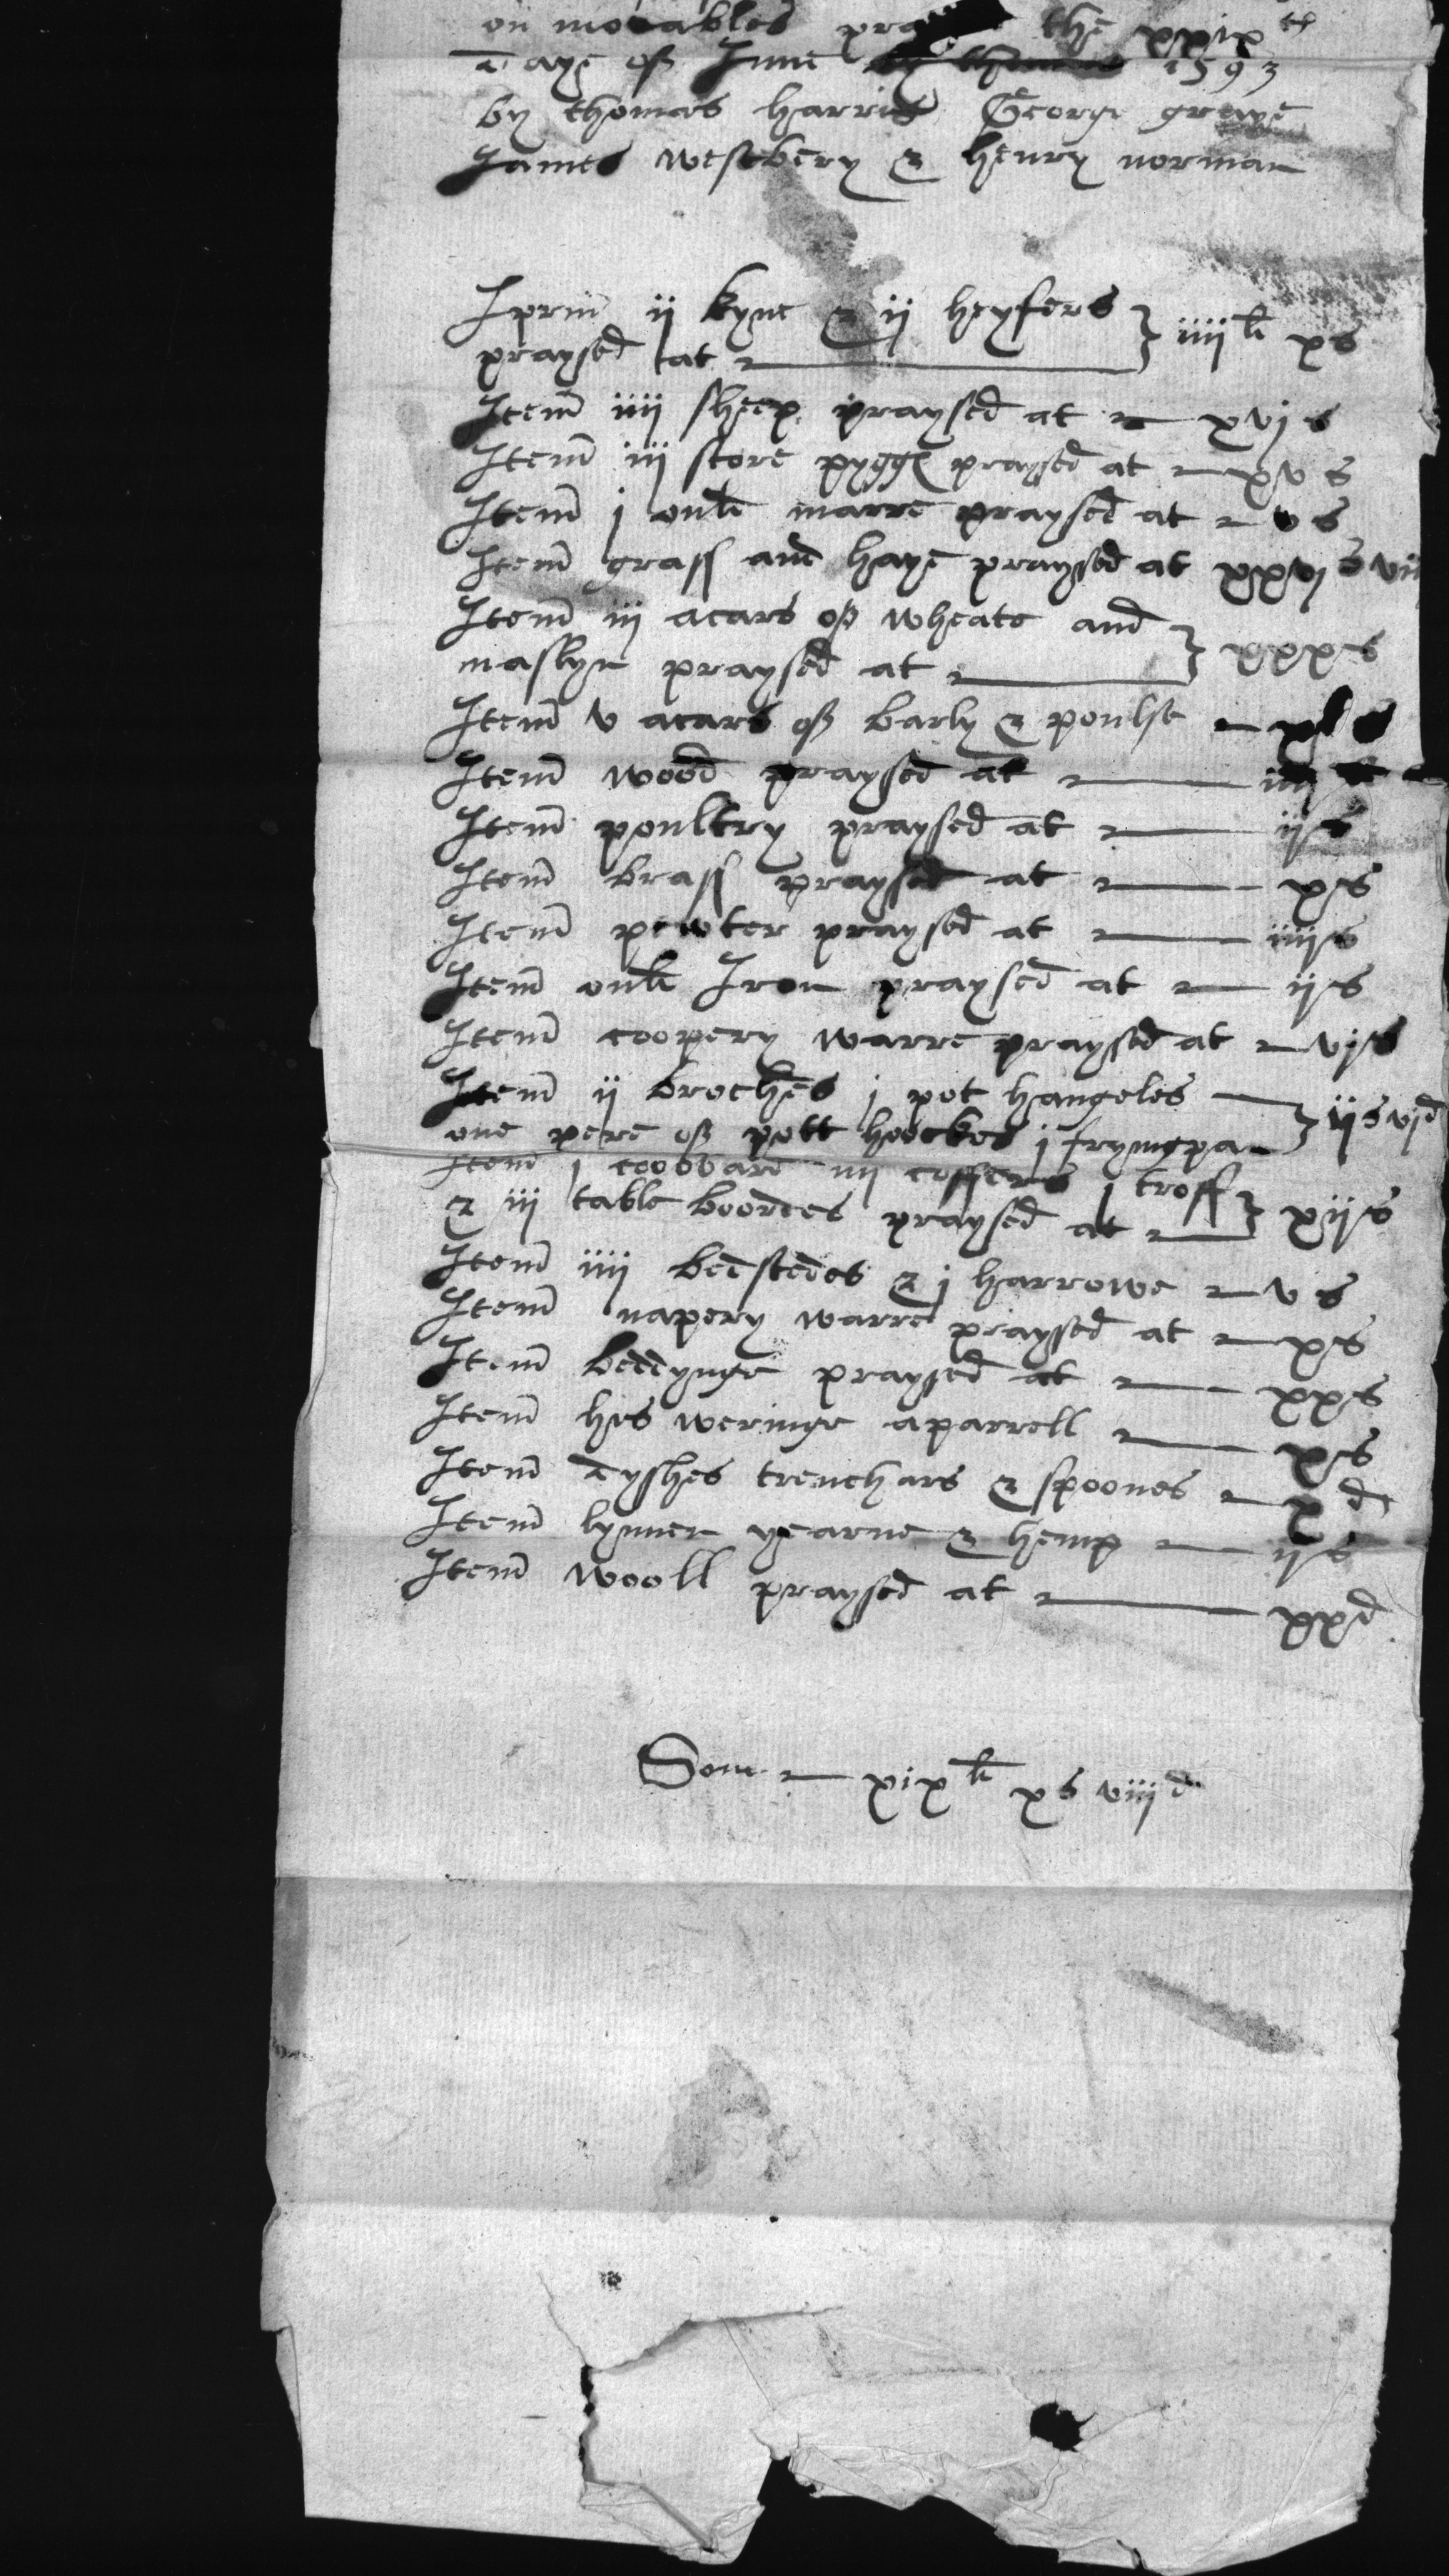 on moables the xxixth
daye of June 1593
by thomas harris George greaye
James westbery & henry norman
Iprim ij kyne & ij heyfers
praysed at iiijli xs
Item iiij sheep praysed at xvjs
Item iij store pygges praysed at xvs
Item j onli marre praysed at vs
Item grass and haye praysed at
Item iij acars of wheate and
maslyn praysed at xxxs
Item v acars of barly & poulse
Item wood praysed at
Item poultry praysed at ijs
Item brass praysed at xs
Item pewter praysed at iiijs
Item onli Iron praysed at ijs
Item coopery warre praysed at vjs
Item ij broches j pot hangeles
one pere of pott hoockes j fryingpan ijs vjd
Item j coobard iiij coffers j troff
& iij table boordes praysed at xijs
Item iiij bedstedes & j harrowe vs
Item napery warre praysed at xs
Item beddynge praysed at xxs
Item his weringe aparrell xs
Item dyshes trenchars & spoones xd
Item lynnen yearne & hemp ijs
Item wooll praysed at xxd
Som xixli xs viijd